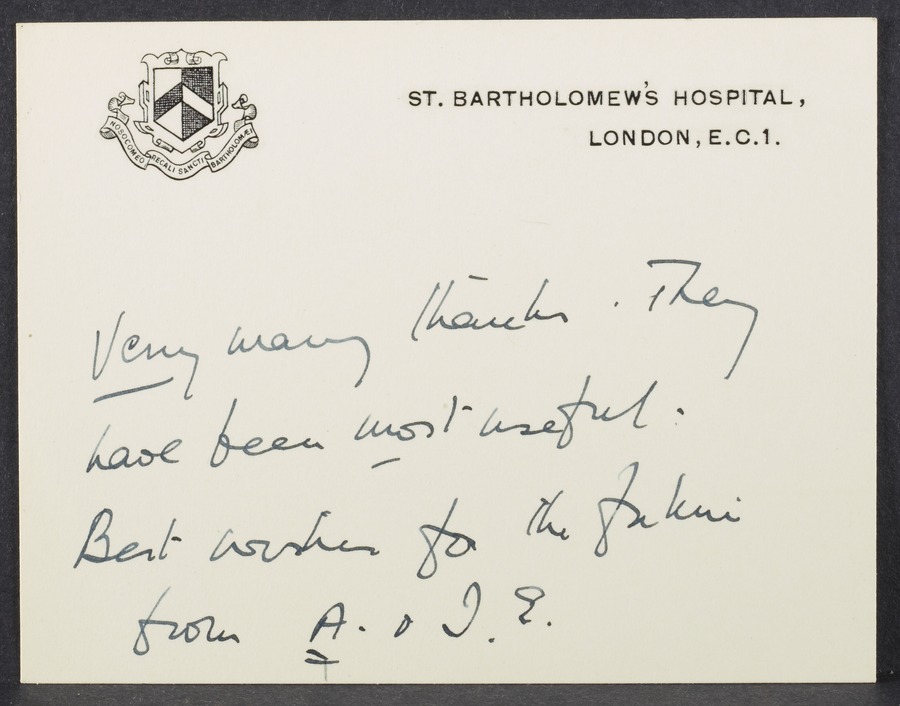 NOSOCOMEO REGALI SANCTI BARTHOLOMÆI
ST. BARTHOLOMEW'S HOSPITAL,
LONDON, E.C.1.
Very many thanks. They
have been most useful.
Best wishes for the future
from A. & J. E.